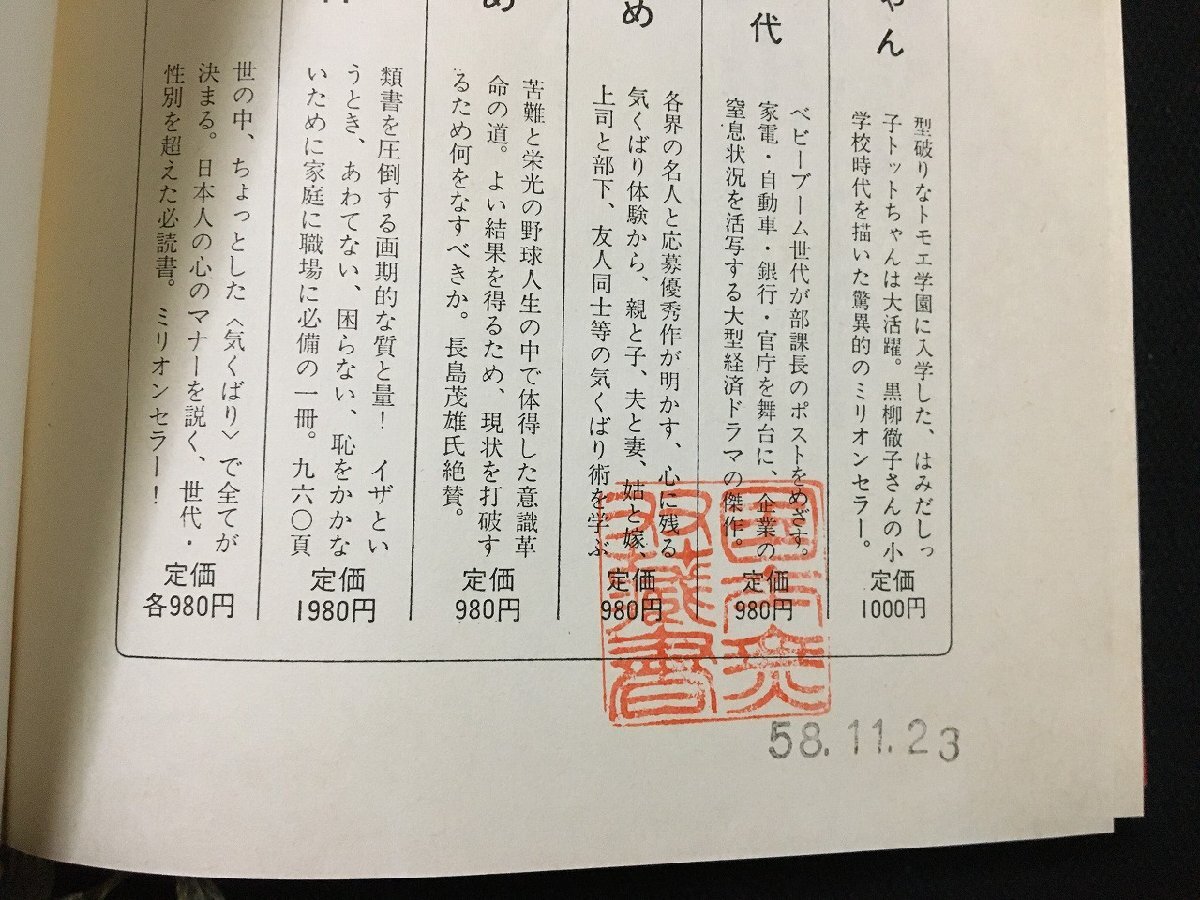 ゃん
型破りなトモエ学園に入学した、はみだしっ
子トットちゃんは大活躍。黒柳徹子さんの小
学校時代を描いた驚異的のミリオンセラー。
定価
1000円
代
ベビーブーム世代が部課長のポストをめざす。
家電・自動車・銀行・官庁を舞台に、企業の
窒息状況を活写する大型経済ドラマの傑作。
定価
980円
め
各界の名人と応募優秀作が明かす、心に残る
気くばり体験から、親と子、夫と妻、姑と嫁、
上司と部下、友人同士等の気くばり術を学ぶ
定価
980円
め
苦難と栄光の野球人生の中で体得した意識革
命の道。よい結果を得るため、現状を打破す
るため何をなすべきか。長島茂雄氏絶賛。
定価
980円
類書を圧倒する画期的な質と量！イザとい
うとき、あわてない、困らない、恥をかかな
いために家庭に職場に必備の一冊。九六〇頁
定価
1980円
世の中、ちょっとした〈気くばり〉で全てが
決まる。日本人の心のマナーを説く、世代・
性別を超えた必読書。ミリオンセラー！
定価
各980円
58.11.23